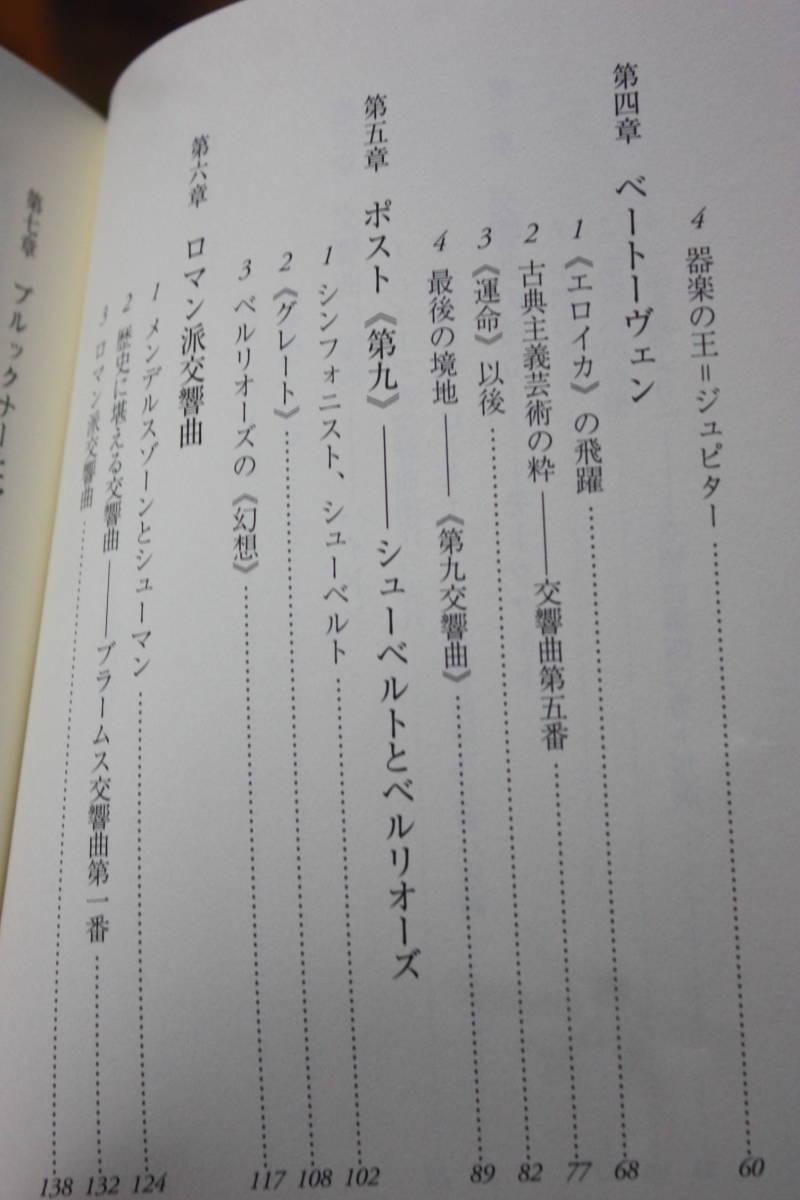 4 器楽の王＝ジュピター……60
第四章 ベートーヴェン
1 《エロイカ》の飛躍……68
2 古典主義芸術の粋――交響曲第五番……77
3 《運命》以後……82
4 最後の境地――《第九交響曲》……89
第五章 ポスト《第九》――シューベルトとベルリオーズ
1 シンフォニスト、シューベルト……102
2 《グレート》……108
3 ベルリオーズの《幻想》……117
第六章 ロマン派交響曲
1 メンデルスゾーンとシューマン……124
2 歴史に堪える交響曲――ブラームス交響曲第一番……132
3 ロマン派交響曲……138
第七章 ブルックナー